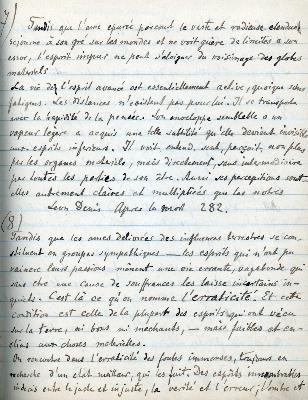 7)
Tandis que l'âme épurée parcourt la vaste et radieuse étendue
séjourne à son gré sur les mondes et ne voit guère de limites à son
essor, l'esprit impur ne peut s'éloigner du voisinage des globes
matériels
La vie de l'esprit avancé est essentiellement active, quoique sans
fatigues. Les distances n'existent pas pour lui. Il se transporte
avec la rapidité de la pensée. Son enveloppe semblable a une
vapeur légère a acquis une telle subtilité qu'elle devient invisible
aux esprits inférieurs. Il voit, entend, sent, perçoit, non plus
par les organes matériels, mais directement, sans intermédiaire
par toutes les parties de son être. Aussi ses perceptions sont
elles autrement claires et multipliées que les notres
Léon Denis Après la mort 282.
(8)
Tandis que les ames délivrées des influences terrestres se cons
tituent en groupes sympathiques — les esprits qui n'ont pu
vaincre leurs passions mènent une vie errante, vagabonde qui
sans être une cause de souffrances les laisse incertains in-
quiets. C'est là ce qu'on nomme l'erraticité. Et cette
condition est celle de la plupart des esprits qui ont vécu
sur la terre, ni bons ni méchants, — mais faibles et en-
clins aux choses matérielles.
On rencontre dans l'erraticité des foules immenses, toujours en
recherche d'un état meilleur, qui les fuit. Des esprits innombrables
indécis entre le juste et injuste, la vérité et l'erreur, l'ombre et